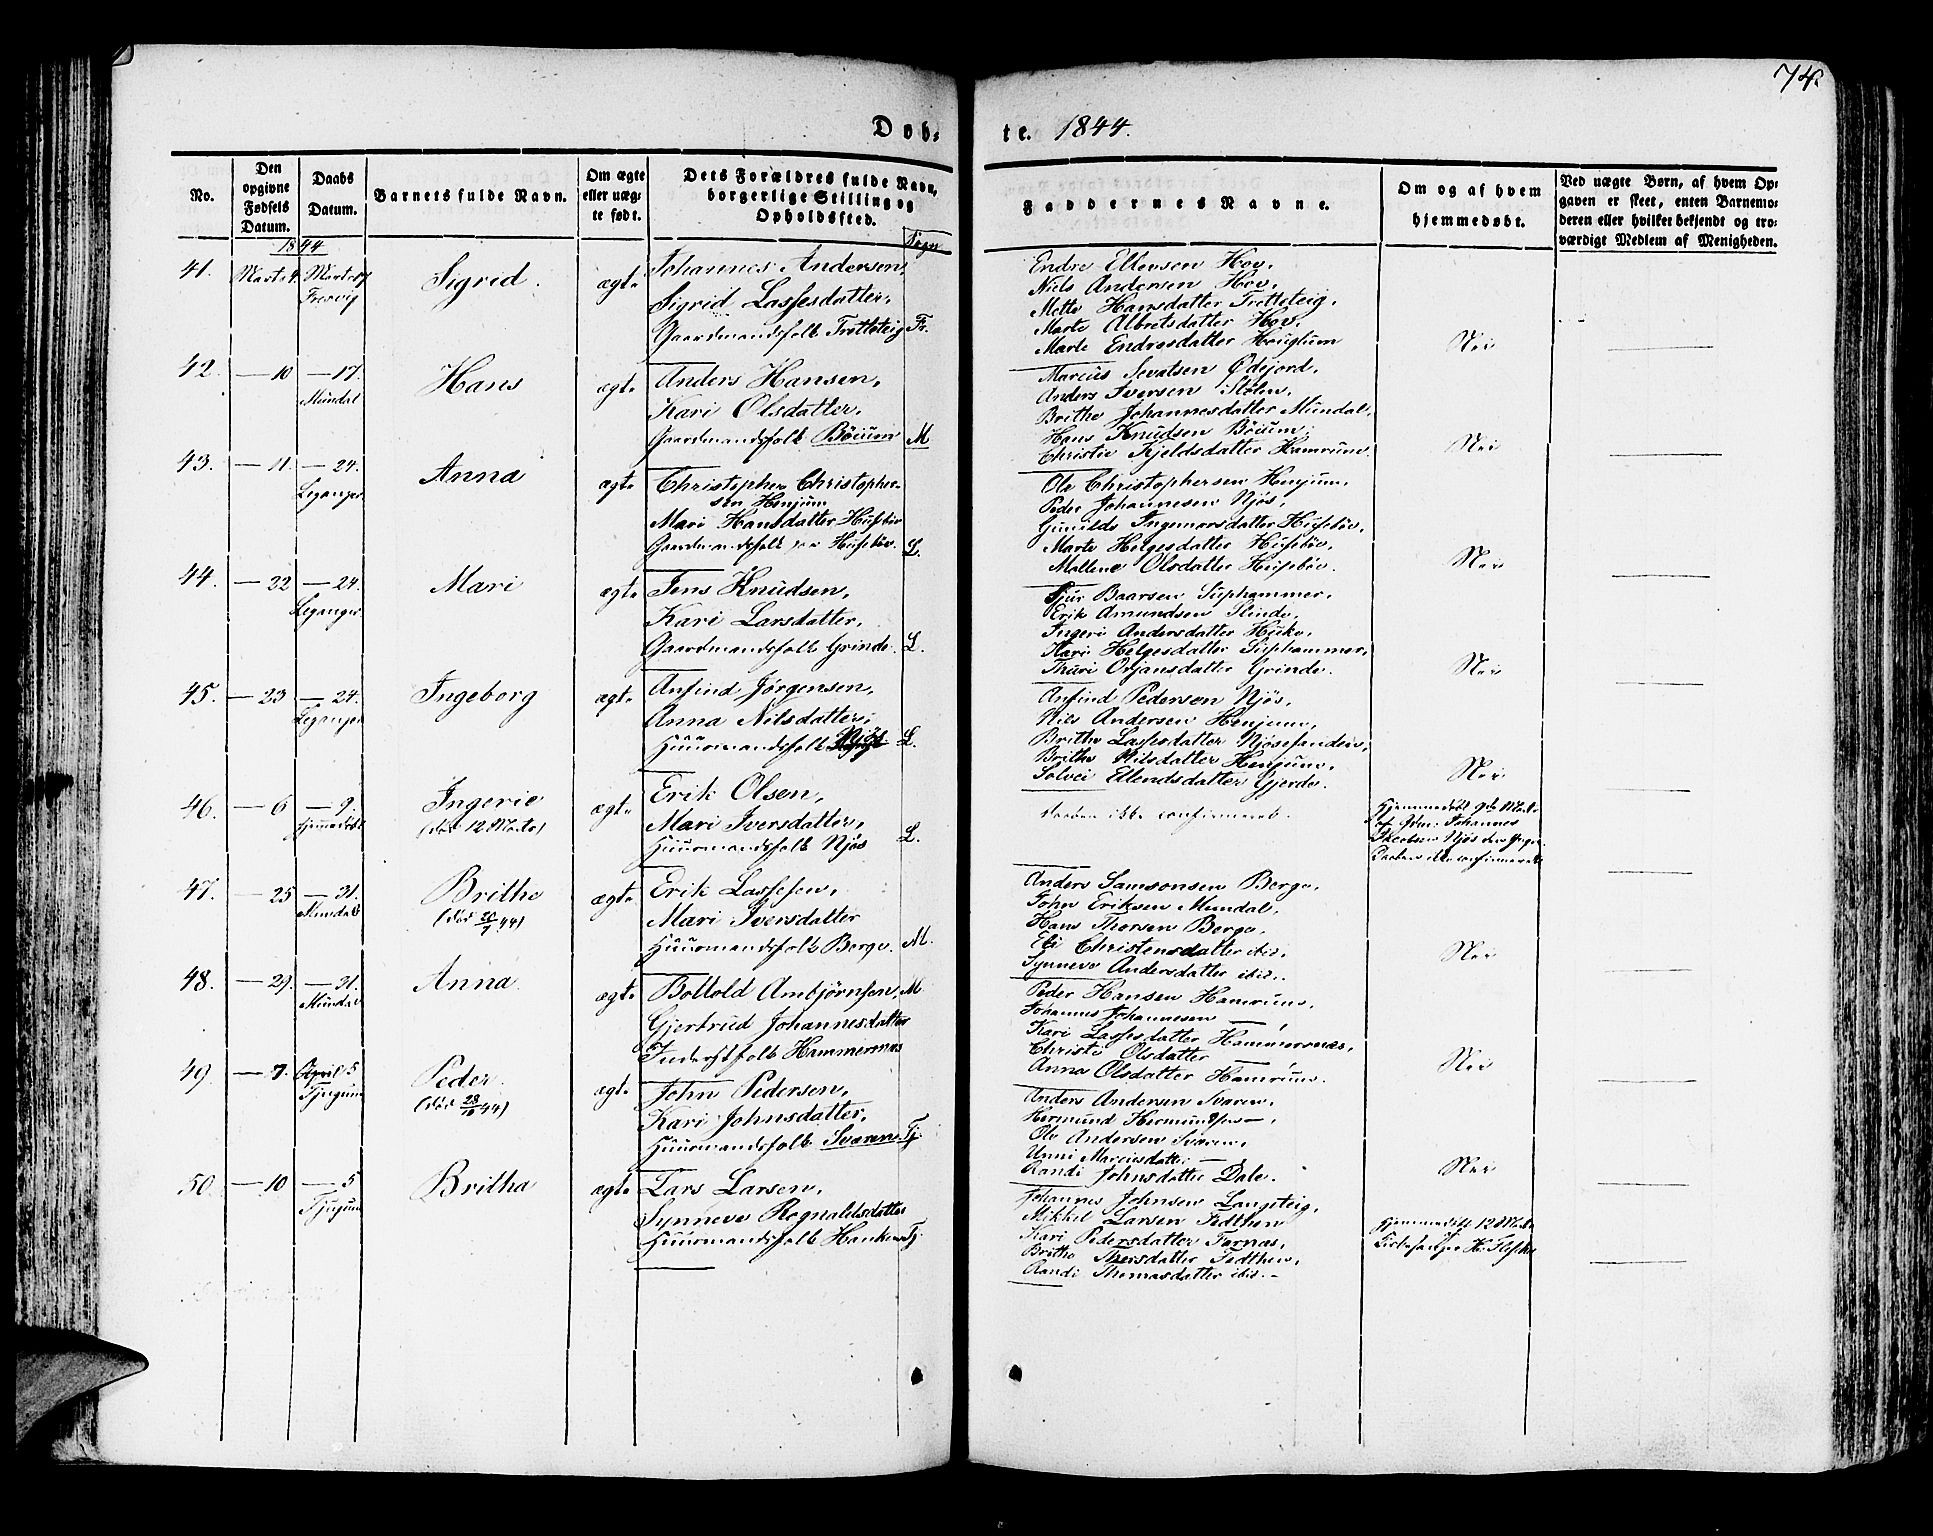 74.
Døb-
te. 1844.
No.
Den opgivne Fødsels Datum.
Daabs Datum.
Barnets fulde Navn.
Om ægte eller uæg-te født.
Dets Forældres fulde Navn, borgerlige Stilling og Opholdsfted.
Sogn
Faddernes Navne.
Om og af hvem hjemmedøbt.
Ved uægte Børn, af hvem Op-gaven er skeet, enten Barnemo-deren eller hvilket bekjendt og tro-værdigt Medlem af Menigheden.
1844
41. Marts 4. Marts Sigrid. ægte Johannes Andersen,
Sigrid Lassesdatter,
Gaardmandsfolk Trotteteig Fr.
Endre Ellensen Hov,
Niels Andersen Hov,
Mette Hansdatter Trotteteig,
Marte Albretsdatter Hov,
Marte Endresdatter Houglum
Nei
42. — 10 — 17. Mundal Hans ægte Anders Hansen,
Kari Olsdatter,
Gaardmandsfolk Böium M
Marcus Sevatsen Ødejord,
Anders Iversen Stølen,
Brithe Johannesdatter Mundal,
Hans Knudsen Böium,
Christie Kjeldsdatter Hamrum
Nei
43. — 11. — 24. Leganger Anna ægte Christopher Christopher-
sen Henjum
Mari Hansdatter Huseböe
Gaardmandsfolk paa Huseböe. L.
Ole Christophersen Henjum,
Peder Johannesen Njøs,
Gunilde Ingemarsdatter Husebøe,
Marte Helgesdatter Husebøe,
Mallene Olsdatter Husebøe.
Nei
44. — 22 — 24. Leganger Mari ægte Jens Knudsen,
Kari Larsdatter,
Gaardmandsfolk Grinde. L.
Sjur Baarsen Suphammer,
Erik Amundsen Slinde,
Ingeri Andersdatter Huke,
Kari Helgesdatter Suphammer,
Thuri Orjansdatter Grinde.
Nei
45. — 23 — 24. Leganger Ingeborg ægte Anfind Jørgensen,
Anna Nilsdatter,
Huusmandsfolk Njøs L.
Anfind Pedersen Njøs,
Nils Andersen Henjum,
Brithe Lassesdatter Njøsesanden,
Brithe Nilsdatter Henjum,
Solvei Ellendsdatter Gjerde.
Nei
46. — 6 — 9. hjemmedøbt Ingerie (død 12 Marts) ægte Erik Olsen,
Mari Iversdatter,
Huusmandsfolk Njøs L.
Daaben ikke confirmeret.
Hjemmedøbt 9de Marts
af Gdm. Johannes
Jacobsen Njøs
Daaben ikke confirmeret
47. — 25 — 31. Mundal Brithe (død 20/7 44) ægte Erik Lassesen,
Mari Iversdatter
Huusmandsfolk Berge. M.
Anders Samsonsen Berge,
John Eriksen Mundal,
Hans Thorsen Berge,
Eli Christensdatter ibid.
Synneve Andersdatter ibid.
Nei
48. — 29. — 31. Mundal Anna. ægte Bottold Ambjørnsen, M
Gjertrud Johannesdatter
Inderstfolk Hammernæs
Peder Hansen Hamrum,
Johannes Johannesen —
Kari Lassesdatter Hammersnæs,
Christi Olsdatter —
Anna Olsdatter Hamrum.
Nei
49. — 7. April 5 Tjugum Peder. (død 28/10 44) ægte John Pedersen,
Kari Johnsdatter,
Huusmandsfolk Sværen Tj.
Anders Andersen Sværen,
Hermund Hermundsen —,
Ole Andersen Sværen,
Unni Marcusdatter —
Randi Johnsdatter Dale.
Nei
50. — 10 — 5 Tjugum Britha ægte Lars Larsen,
Synneve Rognaldsdatter
Huusmandsfolk Tj
Johannes Johnsen Langeteig,
Mikkel Larsen Fedthen
Kari Pedersdatter Farnæs,
Brithe Thorsdatter Fedthen,
Randi Thomasdatter ibid. —
Hjemmedøbt 12 Marts